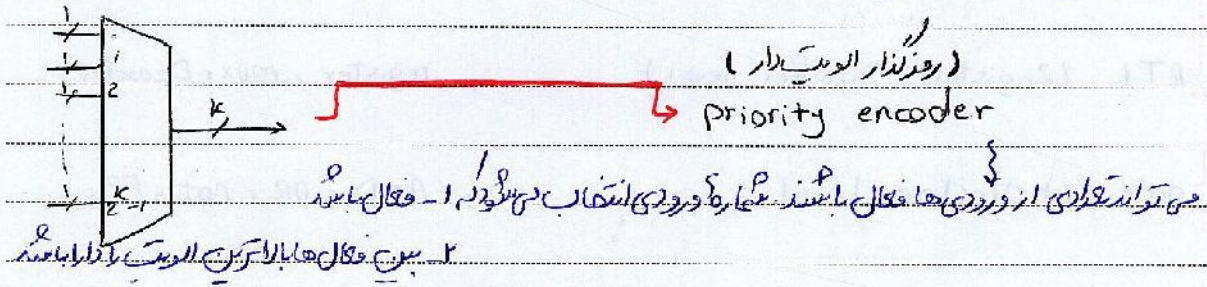 (رمزگذار الویت دار)
priority encoder
می تواند تعدادی از ورودی ها فعال باشند شماره ورودی انتخاب می شود که 1- فعال باشد
2- بین فعال ها بالاترین الویت را دارا باشد
1
1
1
2
K
1
2^K-1